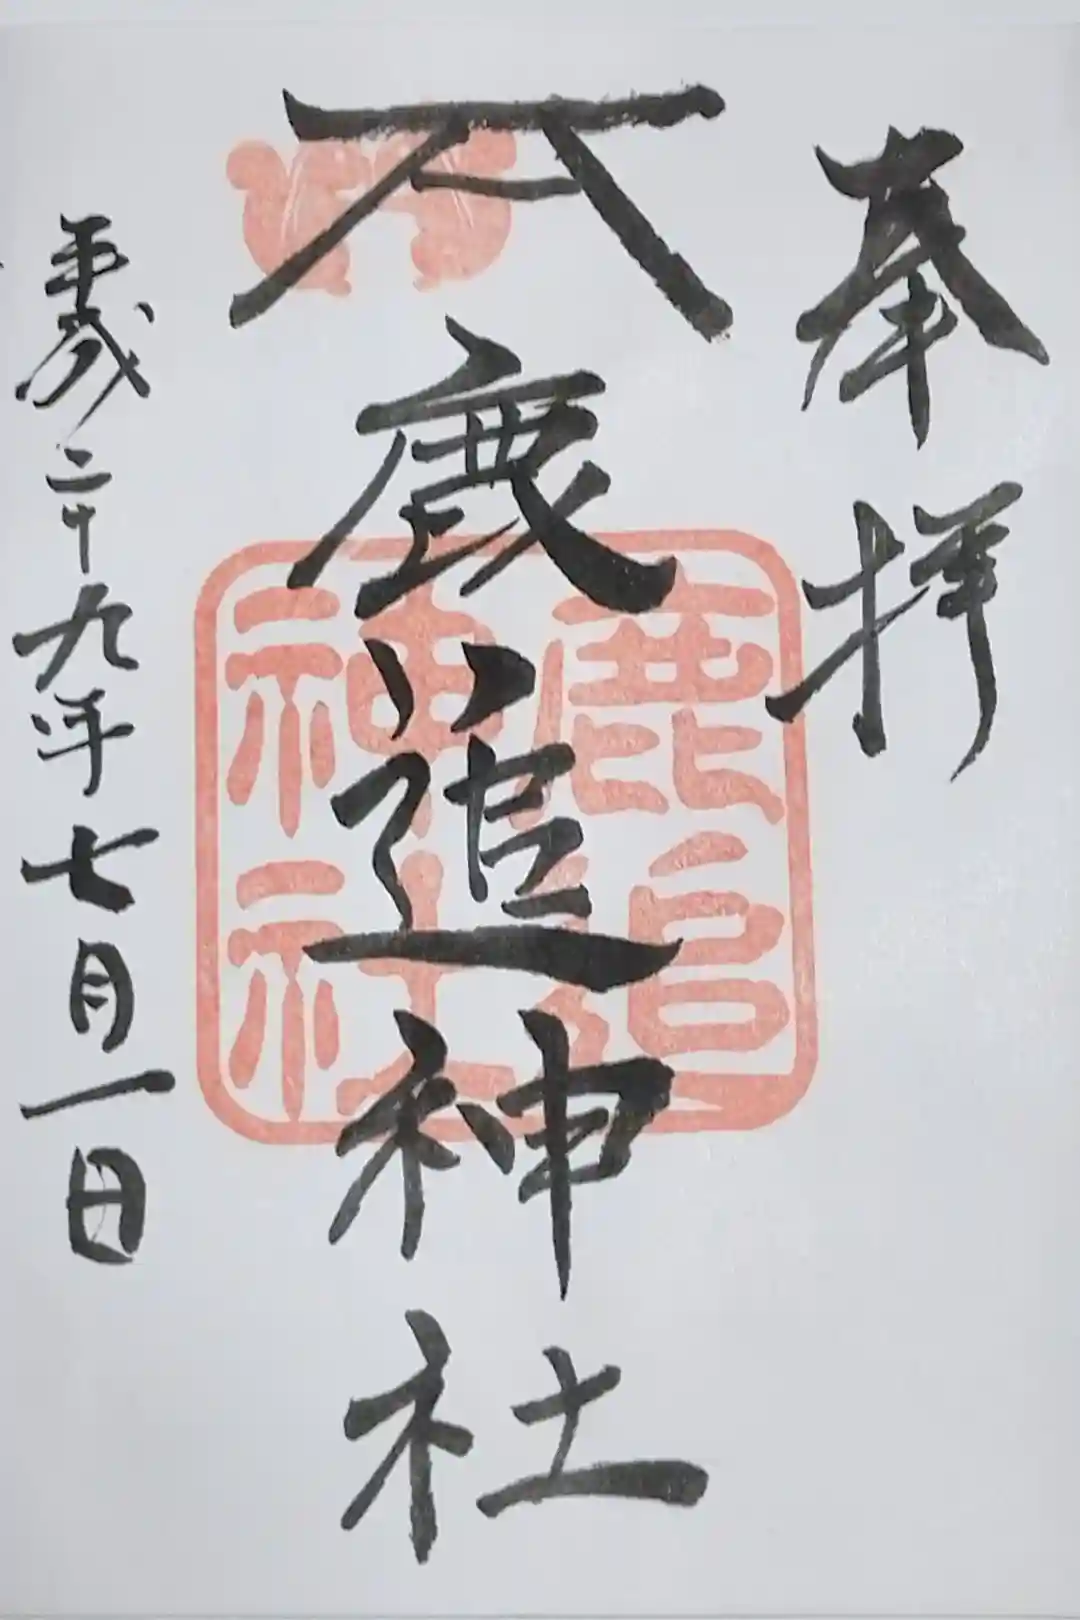 奉拝
鹿追神社
鹿追神社
平成二十九年七月一日